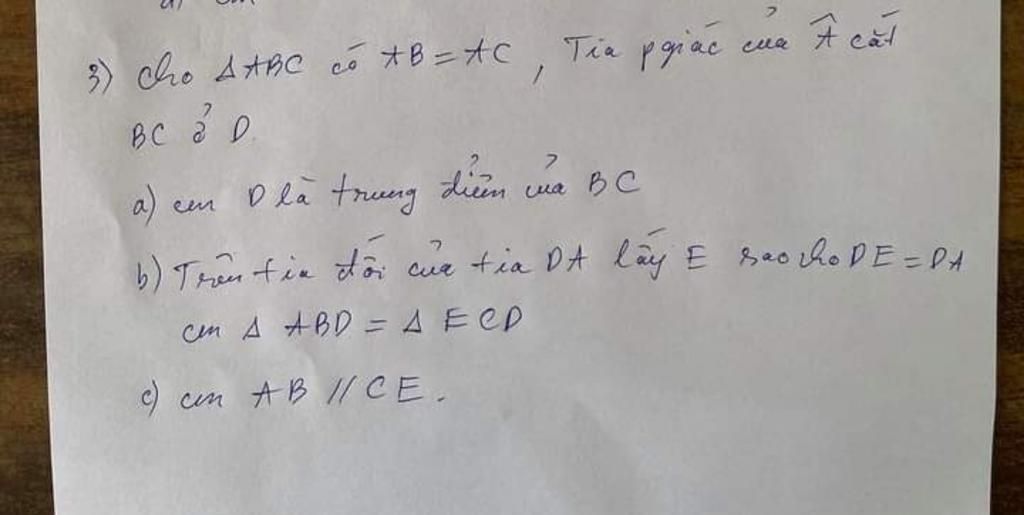 3) Cho ΔABC có AB = AC, Tia pgiác của Â cắt
BC ở D.
a) cm D là trung điểm của BC
b) Trên tia đối của tia DA lấy E sao cho DE = DA
cm Δ ABD = Δ ECD
c) cm AB // CE.